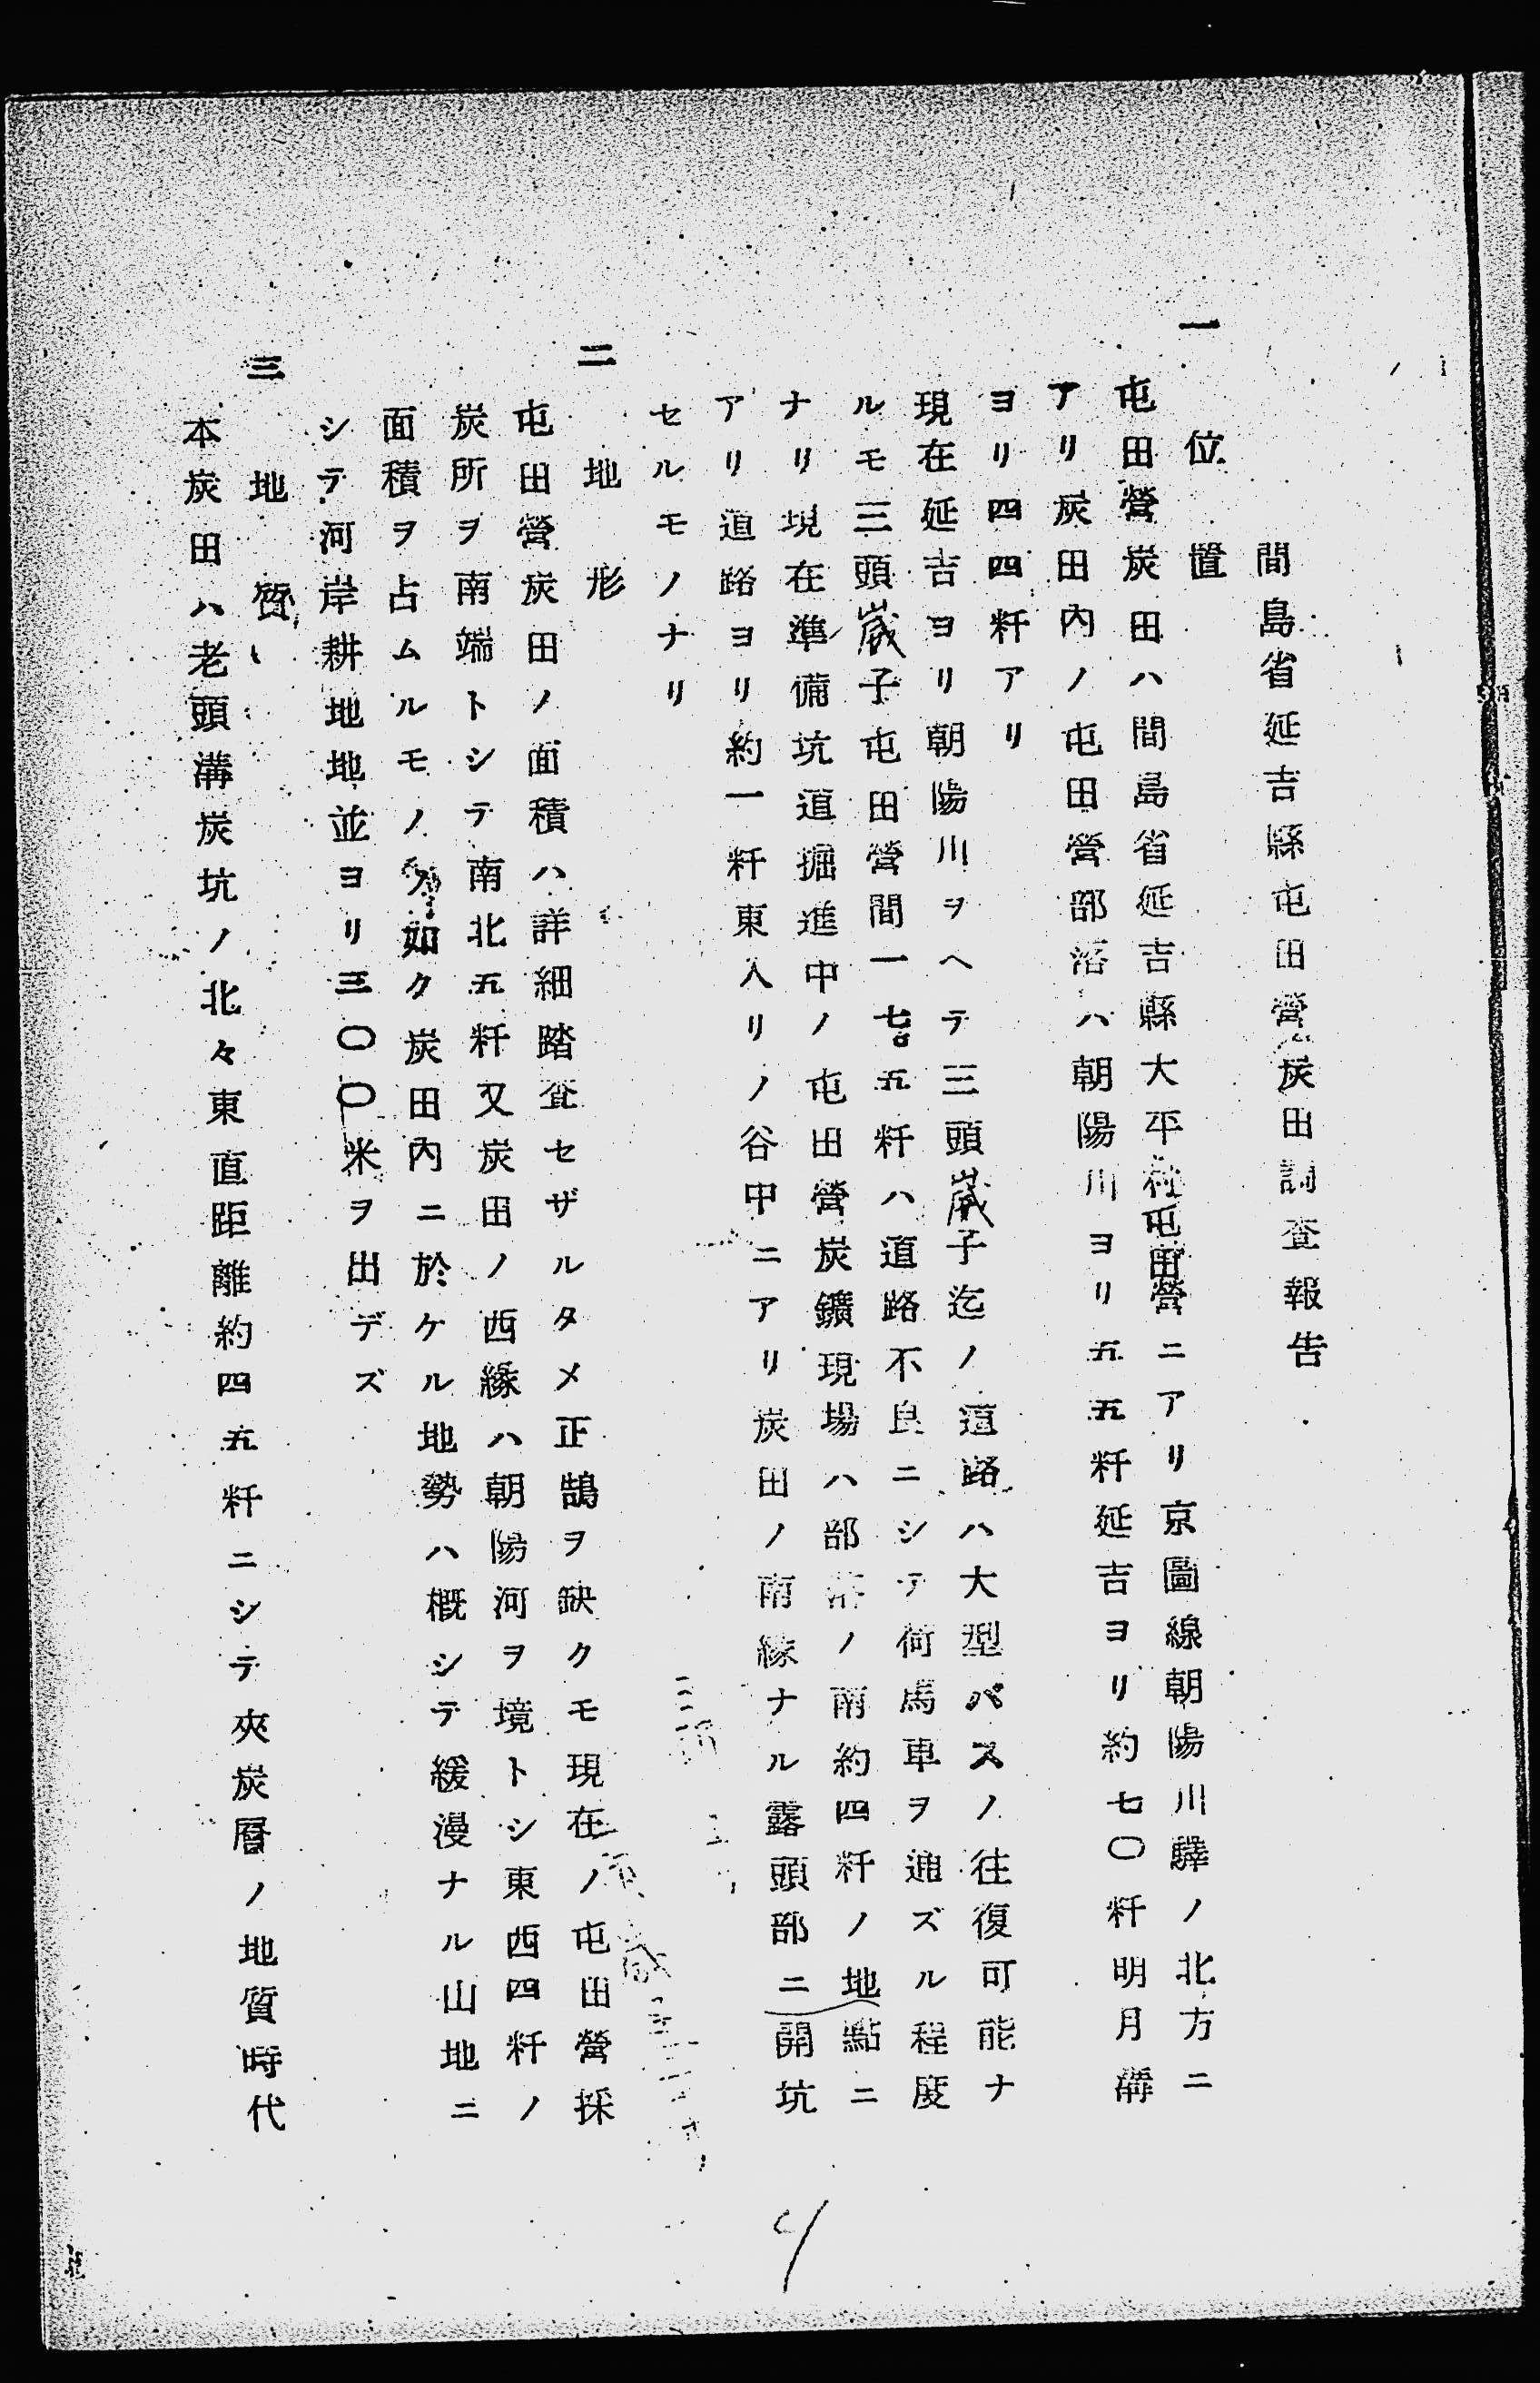 間島省延吉縣屯田營炭田調査報告
一 位置
屯田營炭田ハ間島省延吉縣大平村屯田營ニアリ京圖線朝陽川驛ノ北方ニ
アリ炭田内ノ屯田營部落ハ朝陽川ヨリ五五粁延吉ヨリ約七〇粁明月溝
ヨリ四四粁アリ
現在延吉ヨリ朝陽川ヲヘテ三頭嵗子迄ノ道路ハ大型バスノ往復可能ナ
ルモ三頭嵗子屯田營間一七五粁ハ道路不良ニシテ荷馬車ヲ通ズル程度
ナリ現在準備坑道掘進中ノ屯田營炭鑛現場ハ部落ノ南約四粁ノ地點ニ
アリ道路ヨリ約一粁東入リノ谷中ニアリ炭田ノ南縁ナル露頭部ニ開坑
セルモノナリ
二 地形
屯田營炭田ノ面積ハ詳細踏査セザルタメ正鵠ヲ缺クモ現在ノ屯田營採
炭所ヲ南端トシテ南北五粁又炭田ノ西縁ハ朝陽河ヲ境トシ東西四粁ノ
面積ヲ占ムルモノノ如ク炭田内ニ於ケル地勢ハ概シテ緩漫ナル山地ニ
シテ河岸耕地地並ヨリ三〇〇米ヲ出デズ
三 地質
本炭田ハ老頭溝炭坑ノ北々東直距離約四五粁ニシテ夾炭層ノ地質時代